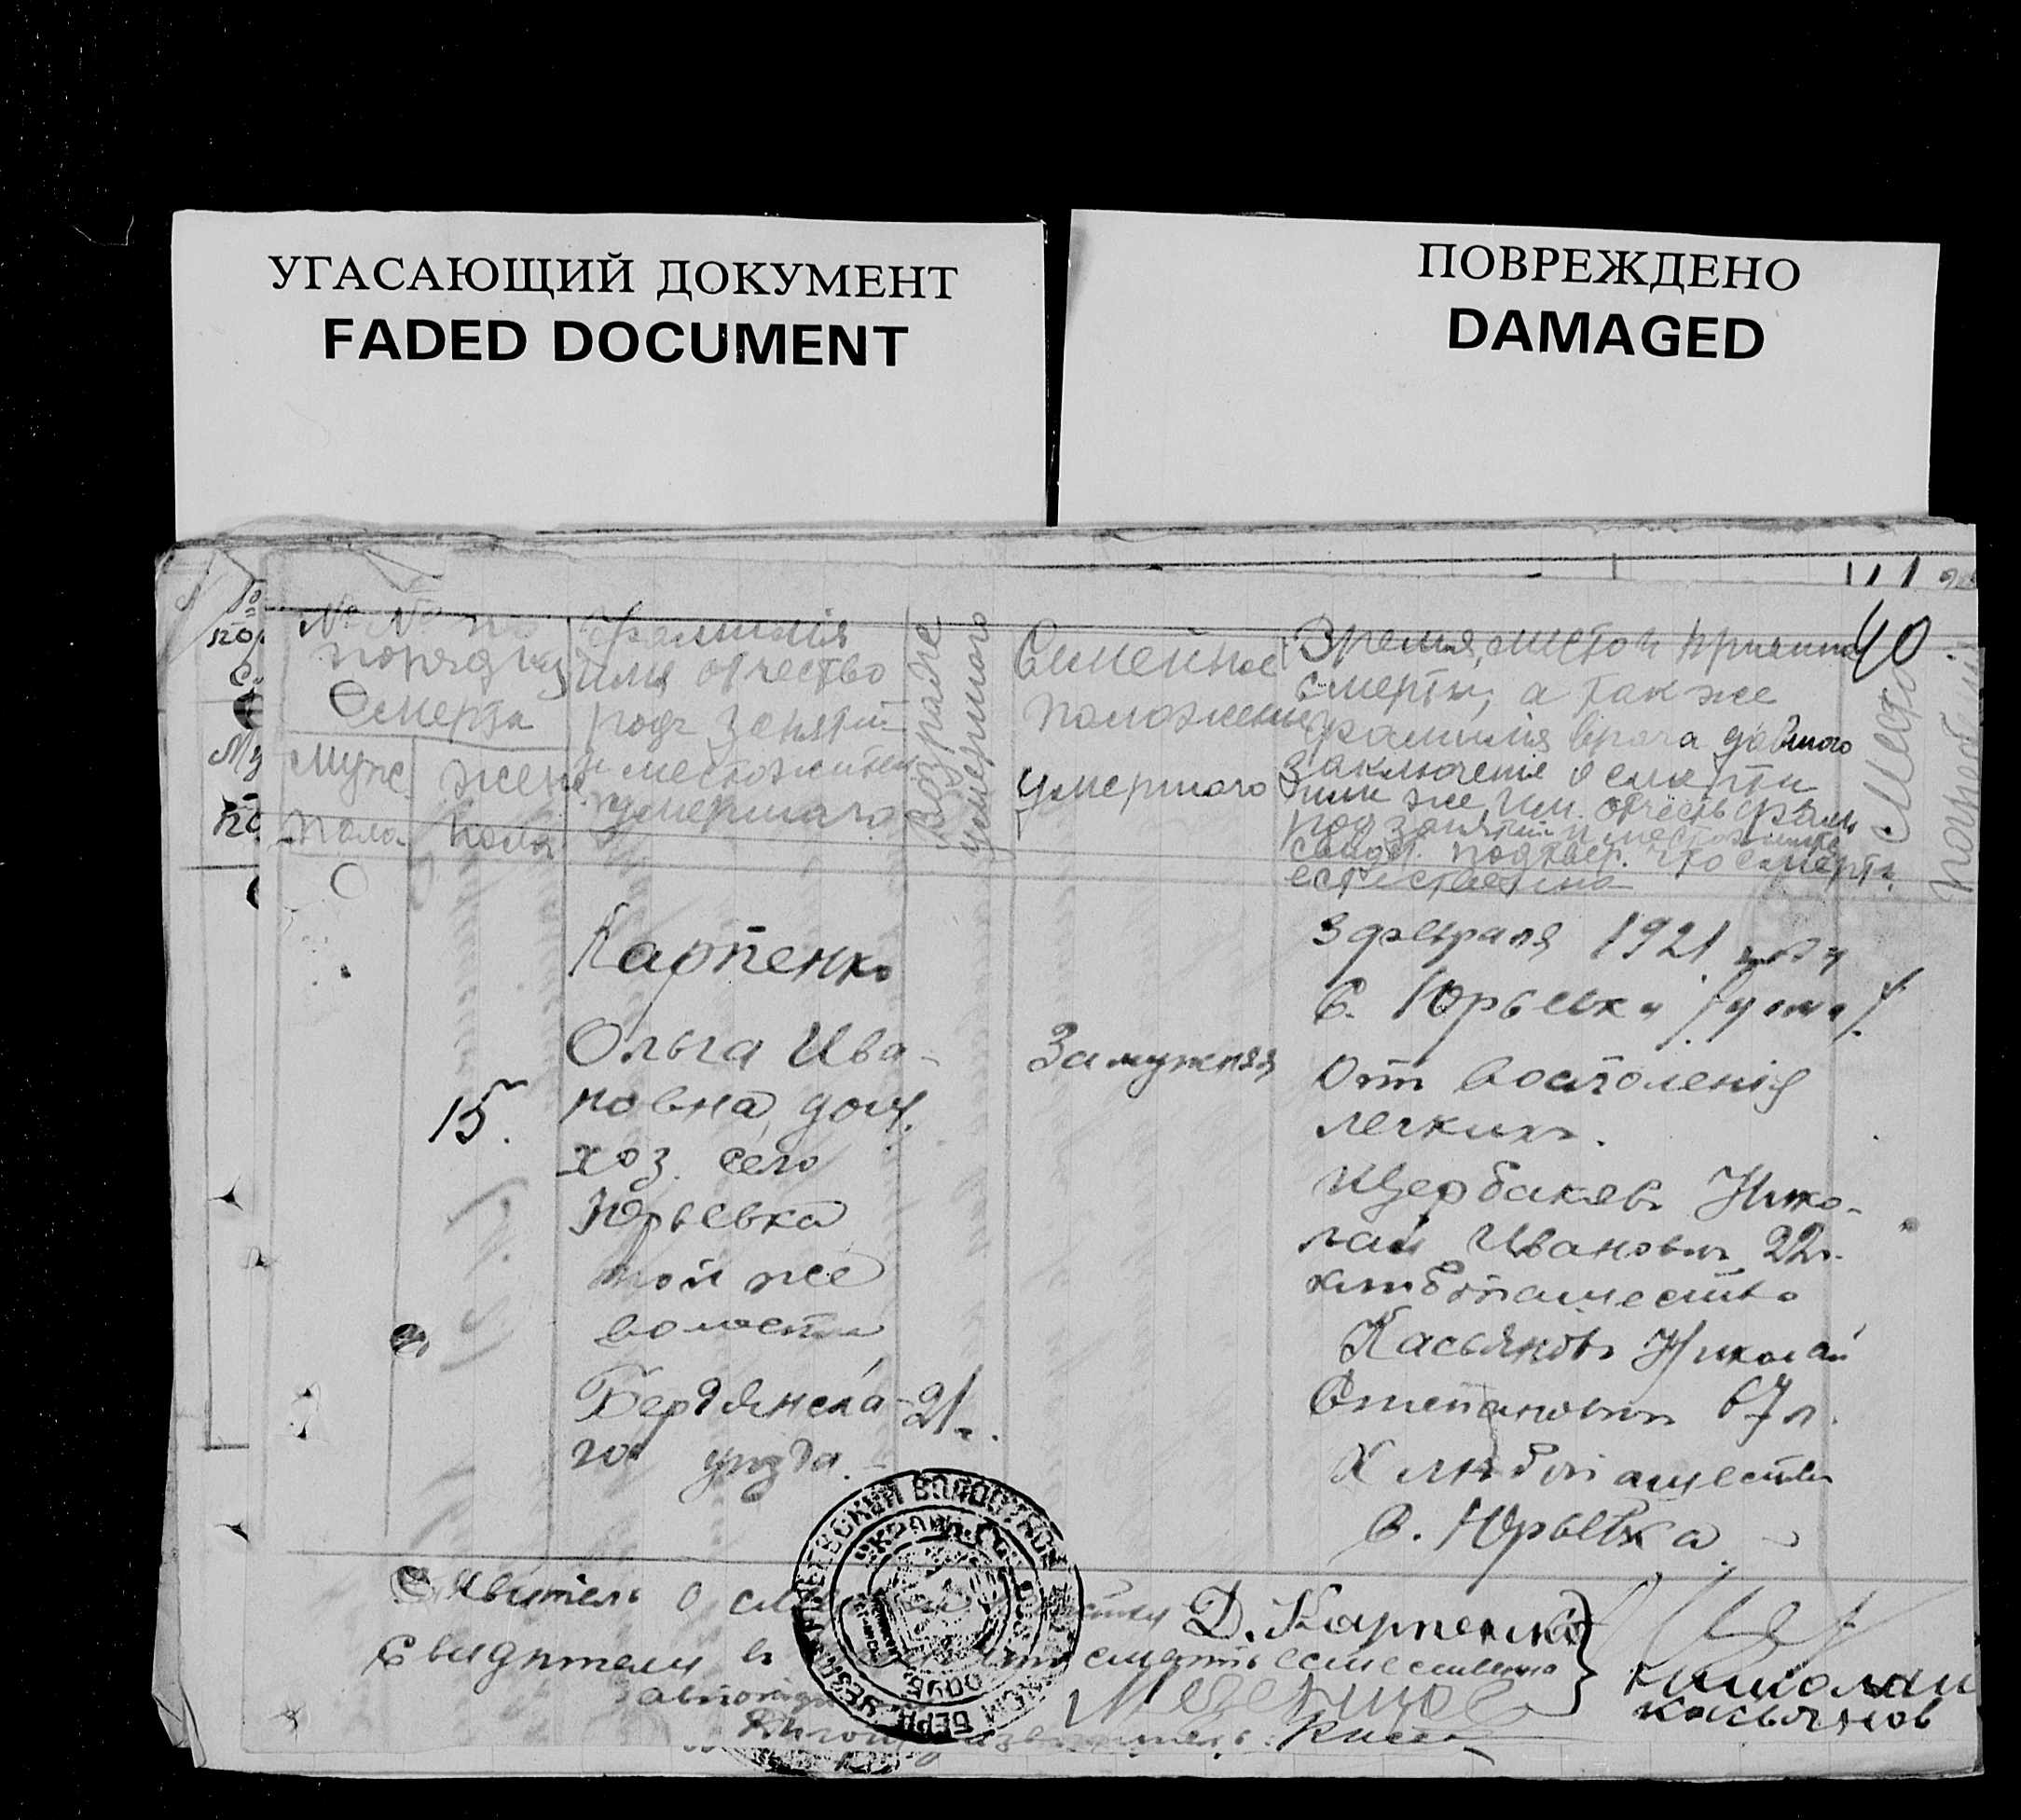 УГАСАЮЩИЙ ДОКУМЕНТ
FADED DOCUMENT
ПОВРЕЖДЕНО
DAMAGED
40.
№ № по
порядку
Смерти
Муже
пола
жен
пола
Фамилія
имя отчество
родъ занятій
и местожит
умершаго
Возраст
умершаго
Семейное
положение
умершаго
Время, место и причина
смерти, а так же
фамилія врача давшаго
заключеніе о смерти
или же им. отчеств фамил
род занятій и местожит
свидет. подтвер. что смерть
естественна
Место
погребения
15.
Карпенко
Ольга Ива-
новна, доч.
хоз. село
Юрьевка
той же
волости
Бердянска-
го уѣзда.
21 г.
Замужняя
3 февраля 1921 года
С. Юрьевка /дома/.
От воспаленія
легкихъ.
Щербаковъ Нико-
лай Ивановичъ 22 л.
хлѣбопашество
Касьяновъ Николай
Степановичъ 67 л.
Хлѣбопашество
с. Юрьевка
Заявитель о Д. Карпенко
Свидѣтели въ смерть естественна
Николай
Касьянов